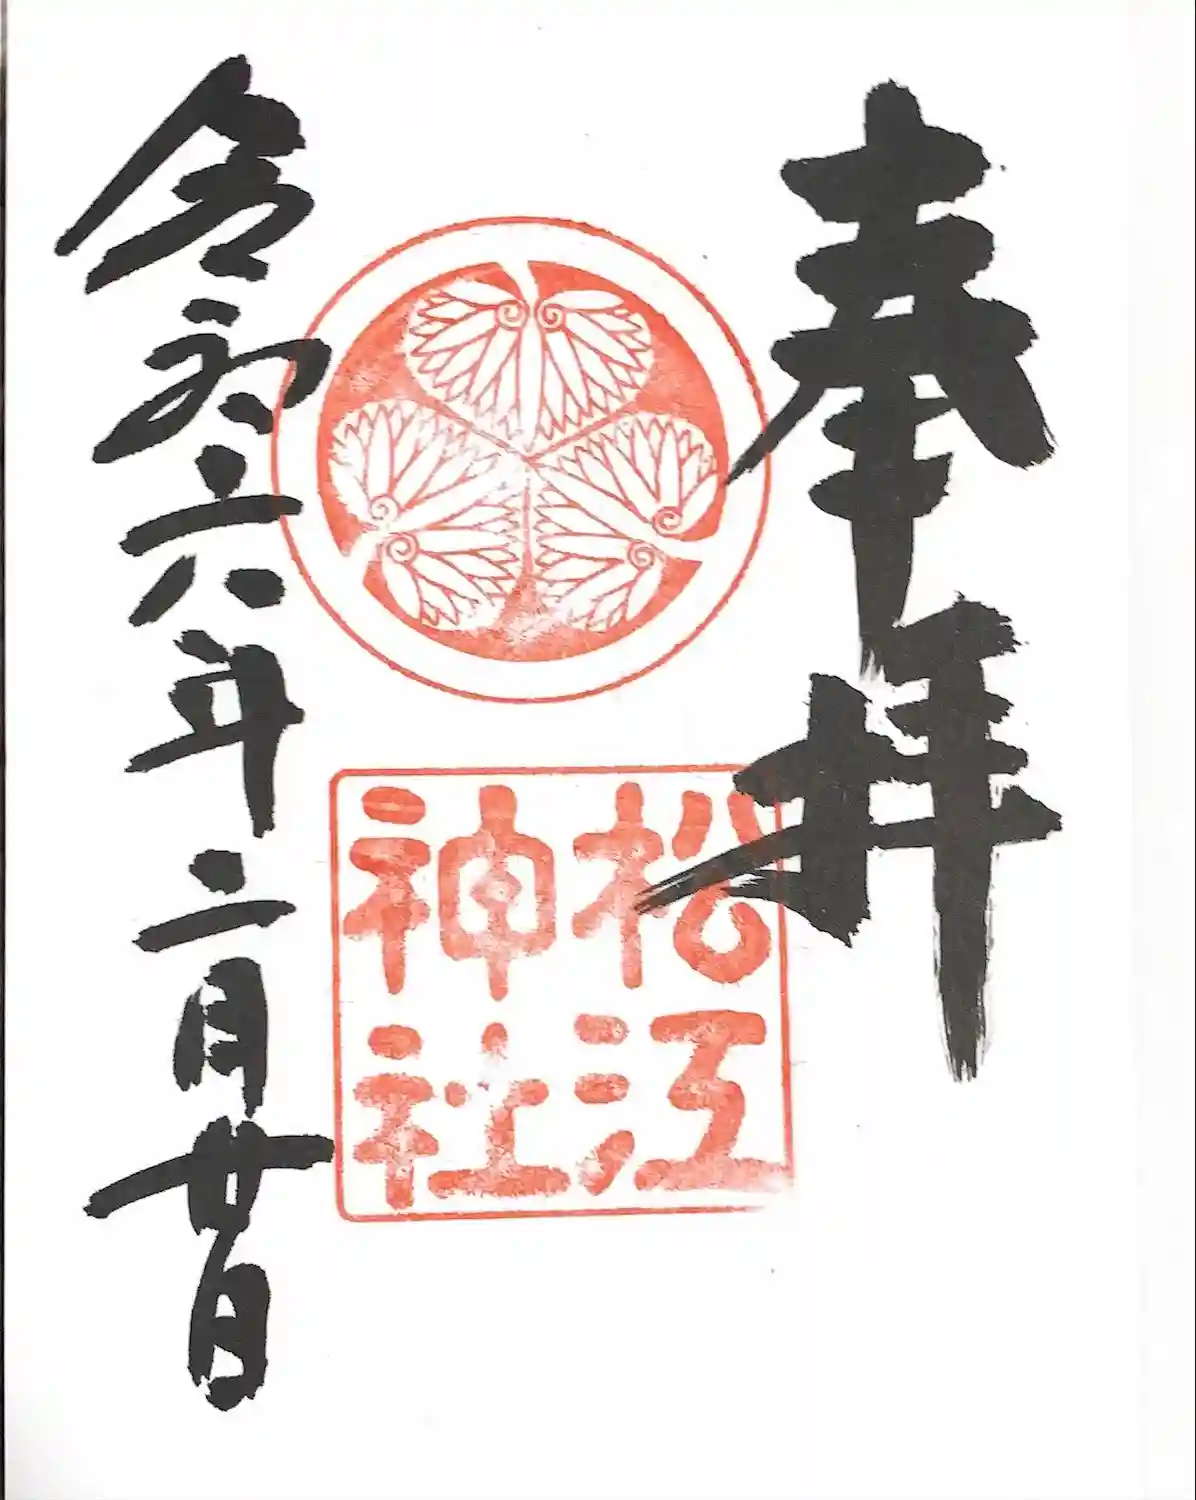 奉拝
松江
神社
令和六年二月廿日